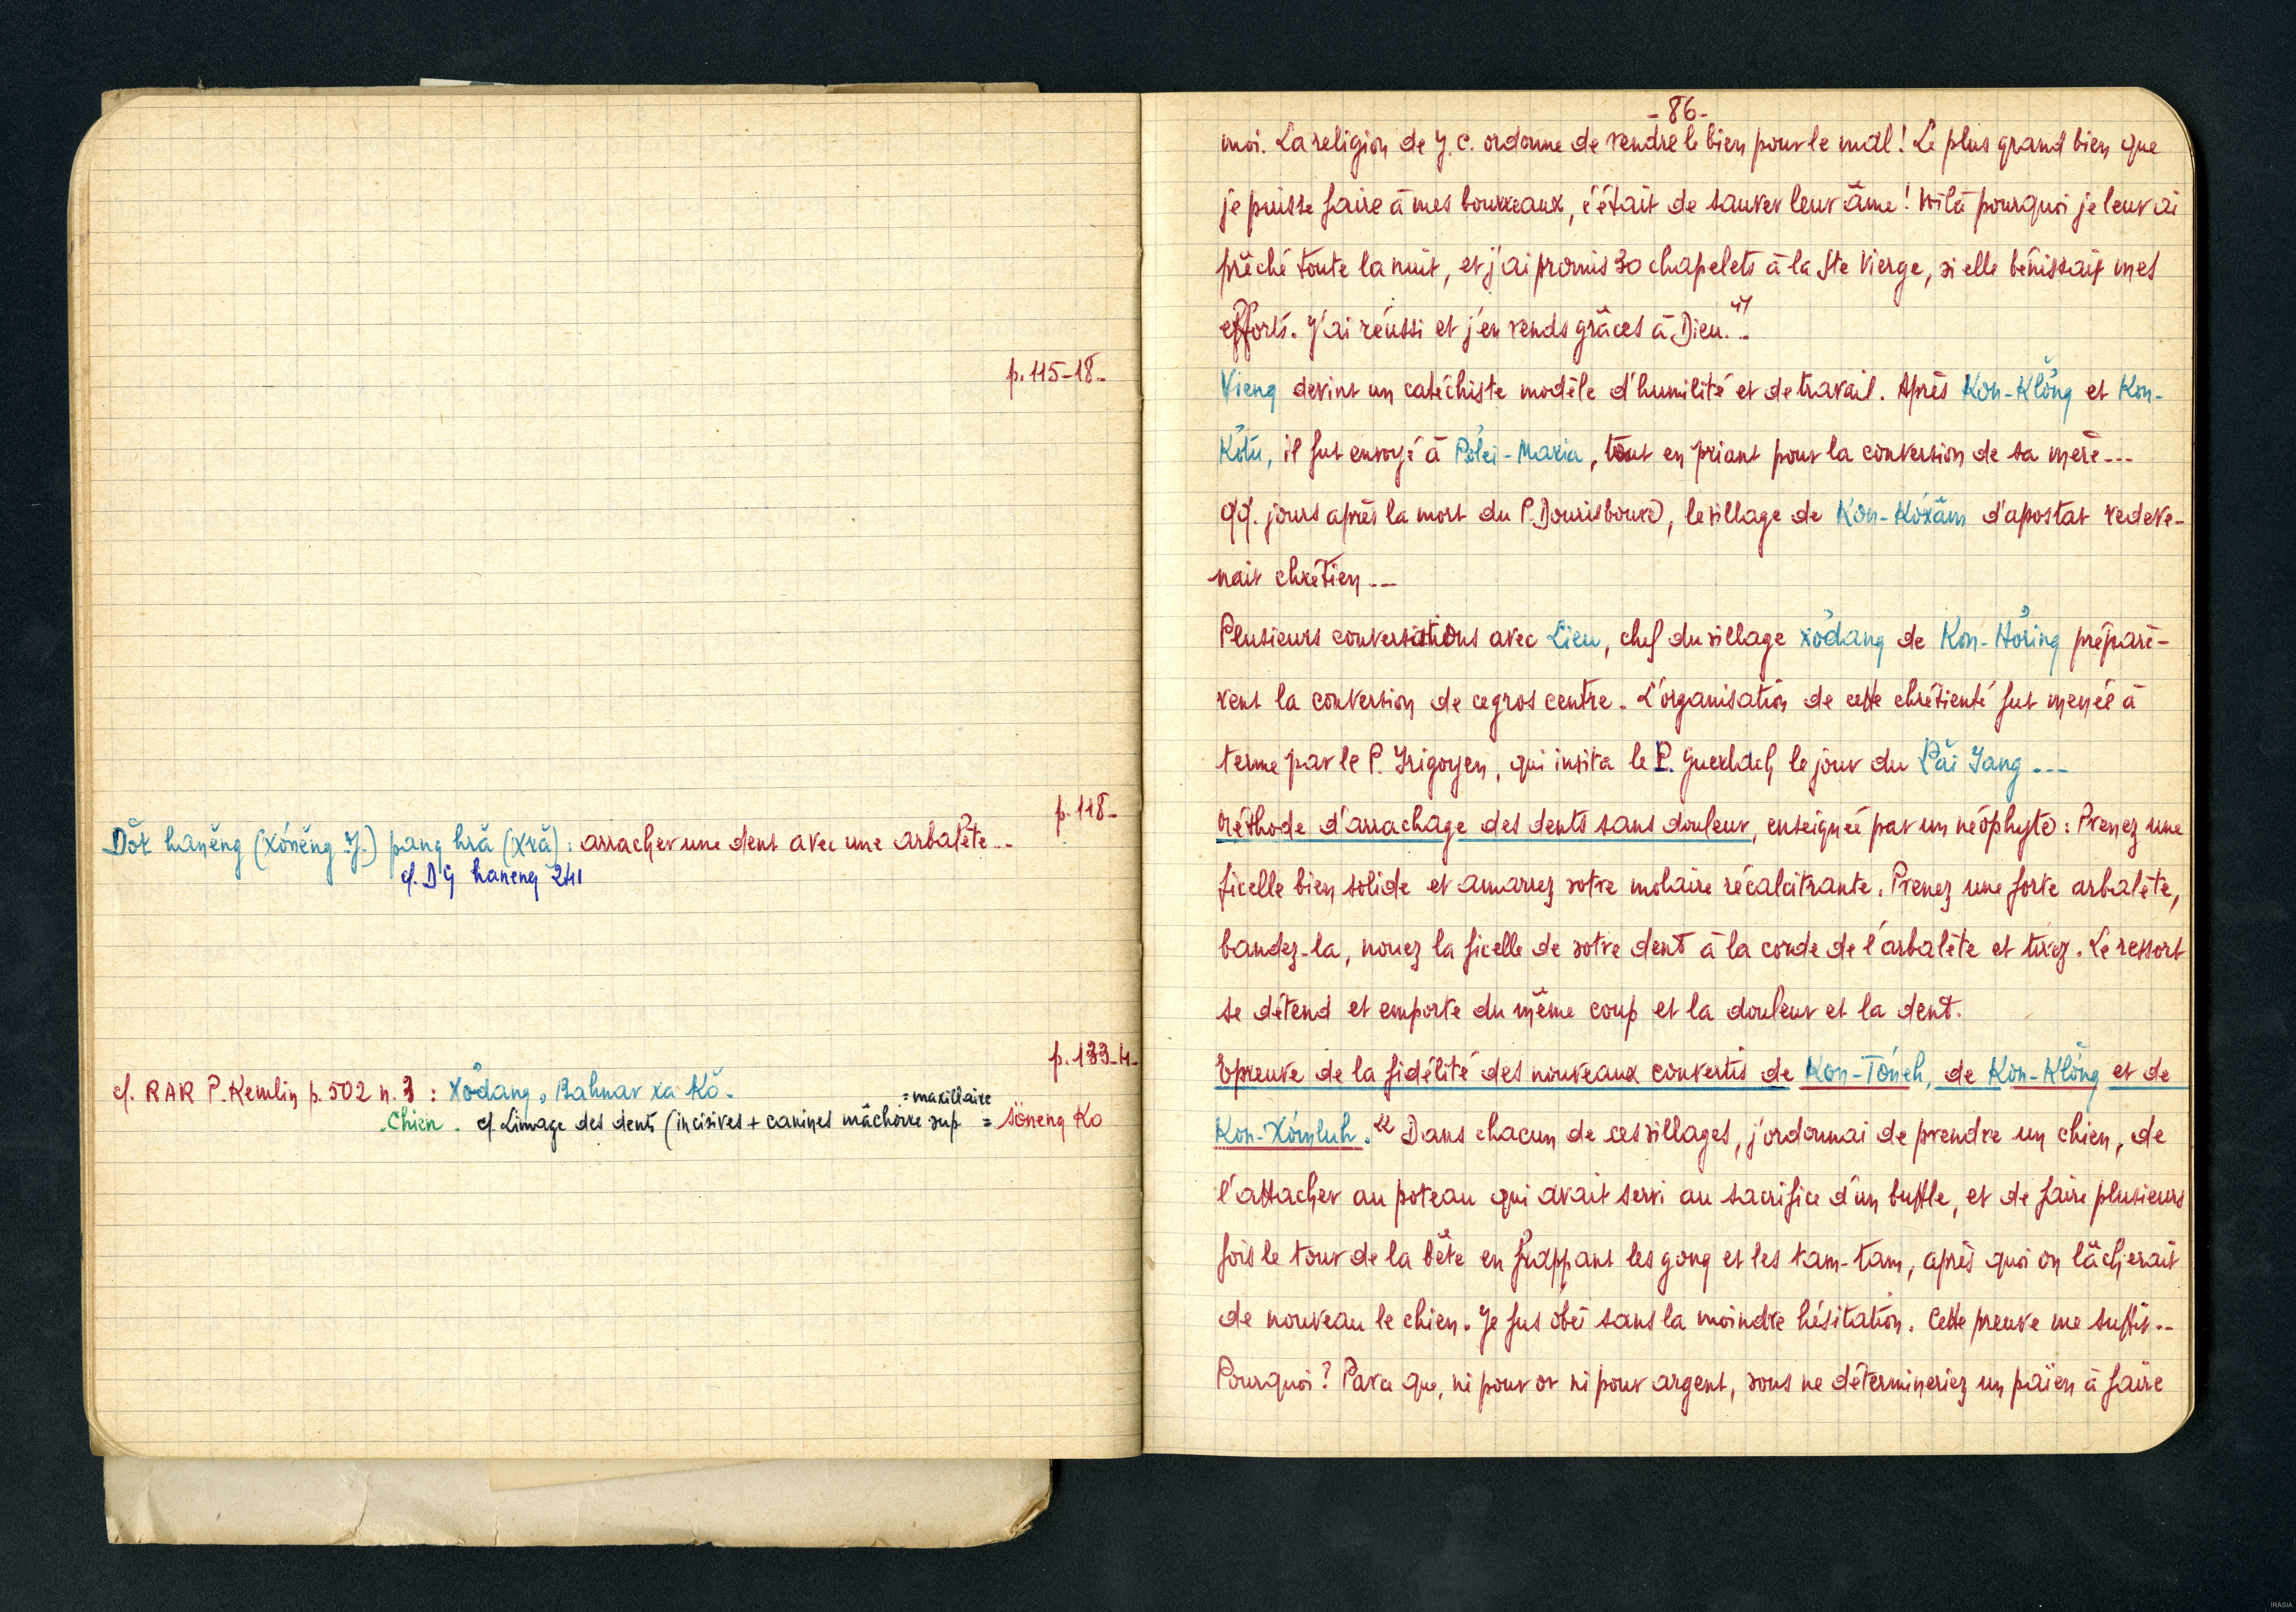 p. 115-18-
p. 118-
Dŏk hanĕng (xónĕng J.) pang hră (xră) : arracher une dent avec une arbalète...
cf. DG haneng 241
p. 133-4-
cf. RAR P. Kemlin p. 502 n. 3 : Xơ̆dang, Bahnar xa Kŏ.
= maxillaire
Chien. cf. Limage des dents (incisives + canines mâchoire sup. = söneng Ko
-86-
moi. La religion de J. C. ordonne de rendre le bien pour le mal ! Le plus grand bien que
je puisse faire à mes bourreaux, c'était de sauver leur âme ! Voilà pourquoi je leur ai
prêché toute la nuit, et j'ai promis 30 chapelets à la Ste Vierge, si elle bénissait mes
efforts. J'ai réussi et j'en rends grâces à Dieu..."
Vieng devint un catéchiste modèle d'humilité et de travail. Après Kon-Klŏng et Kon-
Kơ̆tu, il fut envoyé à Pơ̆lei-Maria, tout en priant pour la conversion de sa mère...
qq. jours après la mort du P. Dourisboure, le village de Kon-Kóxăm d'apostat redeve-
nait chrétien...
Plusieurs conversations avec Lieu, chef du village xơ̆dang de Kon-Hơ̆ring préparè-
rent la conversion de ce gros centre. L'organisation de cette chrétienté fut menée à
terme par le P. Irigoyen, qui invita le P. Guerlach le jour du Păi Yang ...
Méthode d'arrachage des dents sans douleur, enseignée par un néophyte : Prenez une
ficelle bien solide et amarrez votre molaire récalcitrante. Prenez une forte arbalète,
bandez-la, nouez la ficelle de votre dent à la corde de l'arbalète et tirez. Le ressort
se détend et emporte du même coup et la douleur et la dent.
Epreuve de la fidélité des nouveaux convertis de Kon-Tónĕh, de Kon-Klŏng et de
Kon-Xómluh. "Dans chacun de ces villages, j'ordonnai de prendre un chien, de
l'attacher au poteau qui avait servi au sacrifice d'un buffle, et de faire plusieurs
fois le tour de la bête en frappant les gong et les tam-tam, après quoi on lâcherait
de nouveau le chien. Je fus obéi sans la moindre hésitation. Cette preuve me suffit...
Pourquoi ? Parce que, ni pour or ni pour argent, vous ne détermineriez un païen à faire
IRASIA